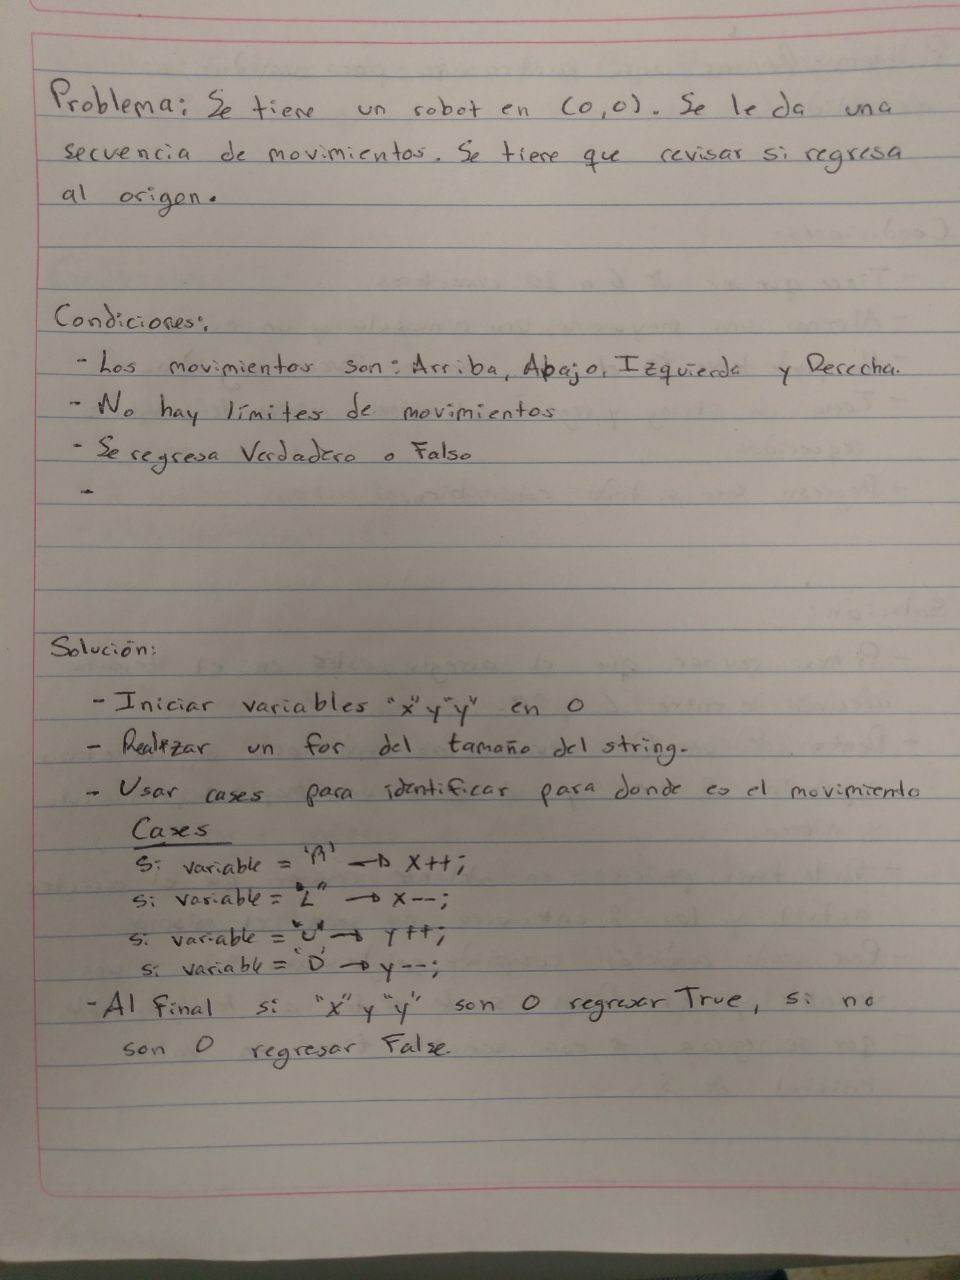 Problema: Se tiene un robot en (0,0). Se le da una
secuencia de movimientos. Se tiene que revisar si regresa
al origen.
Condiciones:
- Los movimientos son: Arriba, Abajo, Izquierda y Derecha.
- No hay límites de movimientos
- Se regresa Verdadero o Falso
-
Solución:
- Iniciar variables "x" y "y" en 0
- Realizar un for del tamaño del string.
- Usar cases para identificar para donde es el movimiento
Cases
Si variable = 'R' → x++;
si variable = "L" → x--;
si variable = "U" → y++;
si variable = 'D' → y--;
- Al final si "x" y "y" son 0 regresar True, si no
son 0 regresar False.